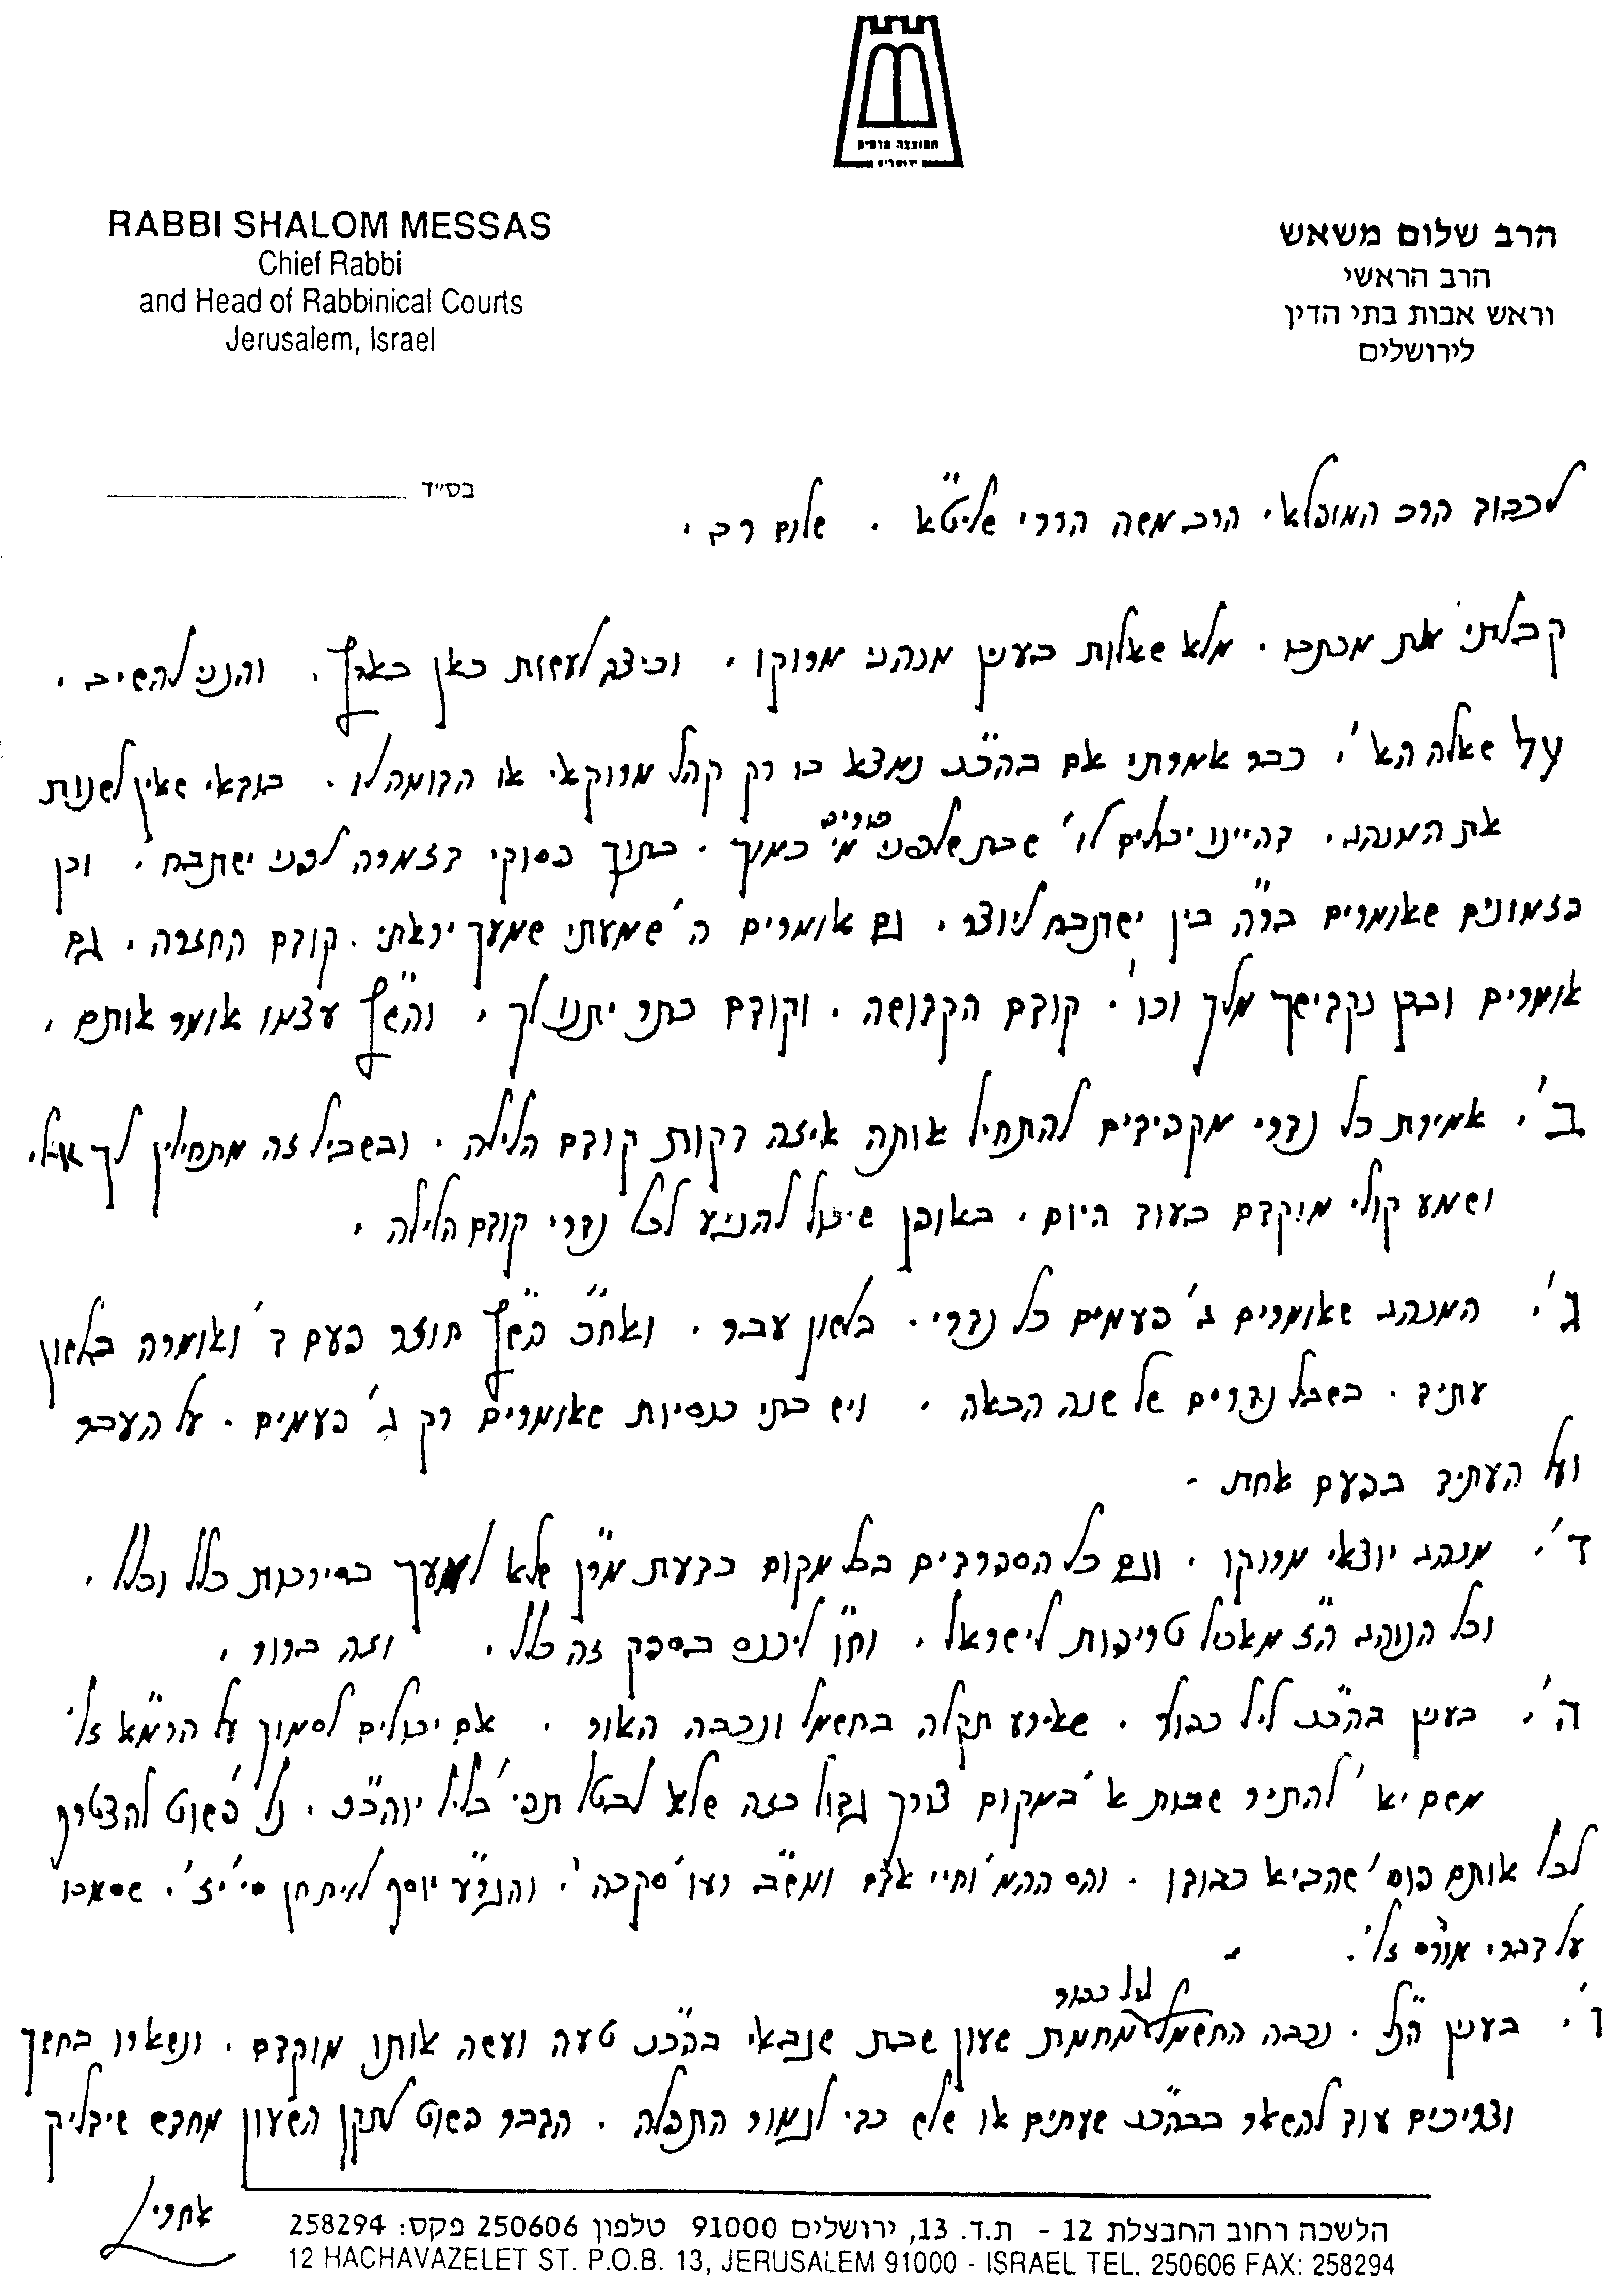 המועצה הדתית
ירושלים
RABBI SHALOM MESSAS
Chief Rabbi
and Head of Rabbinical Courts
Jerusalem, Israel
הרב שלום משאש
הרב הראשי
וראש אבות בתי הדין
לירושלים
בס״ד
לכבוד הרב המופלא, הרב משה הררי שליט"א. שלום רב,
קבלתי את מכתבו. מלא שאלות בענין מנהגי מרוקו, וכיצד לעשות כאן בארץ, והנני להשיב,
על שאלה הא', כבר אמרתי אם בהכ"נ נמצא בו רק קהל מרוקאי או הדומה לו. בודאי שאין לשנות
את המנהג, דהיינו יכולים לו' שבת שלפני פורים מי כמוך. בתוך פסוקי דזמרה לפני ישתבח, וכן
בזמונים שאומרים בר"ה בין ישתבח ליוצר, גם אומרים ה' שמעתי שמעך יראתי. קודם החזרה, גם
אומרים ובכן נקדישך מלך וכו', קודם הקדושה, וקודם כתר יתנו לך, והש"ץ עצמו אומר אותם,
ב', אמירת כל נדרי מקפידים להתחיל אותה איזה דקות קודם הלילה. ובשביל זה מתחילין לך אלי
ושמע קולי מוקדם בעוד היום, באופן שיכול להגיע לכל נדרי קודם הלילה,
ג', המנהג שאומרים ג' פעמים כל נדרי. בלשון עבר. ואח"כ הש"ץ חוזר פעם ד' ואומרה בלשון
עתיד. בשביל נדרים של שנה הבאה, ויש בתי כנסיות שאומרים רק ג' פעמים. על העבר
ועל העתיד בפעם אחת.
ד', מנהג יוצאי מרוקו, וגם כל הספרדים בכל מקום כדעת מר"ן שלא למעך בסירכות כלל וכלל,
וכל הנוהג הז' מאכיל טריפות לישראל, וח"ו ליכנס בספק זה כלל, וזה ברור,
ה', בענין בהכ"נ ליל כפור, שאירע תקלה בחשמל ונכבה האור, אם יכולים לסמוך על הרמ"א ז"ל
משם י"א להתיר שבות א' במקום צורך גדול כזה שלא לבטל תפי' בליל יוהכ"פ, נל' פשוט להצטרף
לכל אותם פוס' שהביא כבודו. והם וחיי אדם ומש"ב והגר"ע יוסף סי' יז', שסמכו
על דברי ז"ל.
ו', בענין הנ"ל, נכבה החשמל ליל כפור מחמת שעון שבת שגבאי בהכ"נ טעה ועשה אותו מוקדם, ונשארו בחשך
וצריכים עוד להשאר בבהכ"נ שעתים או שלש כדי לגמור התפלה. הדבר פשוט לתקן השעון מחדש שידליק
הלשכה רחוב החבצלת 12 - ת.ד. 13, ירושלים 91000 טלפון 250606 פקס: 258294
12 HACHAVAZELET ST. P.O.B. 13, JERUSALEM 91000 - ISRAEL TEL. 250606 FAX: 258294